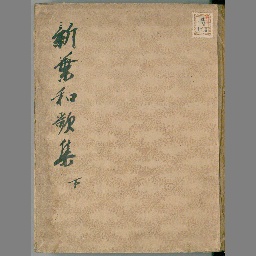 新葉和歌集
下